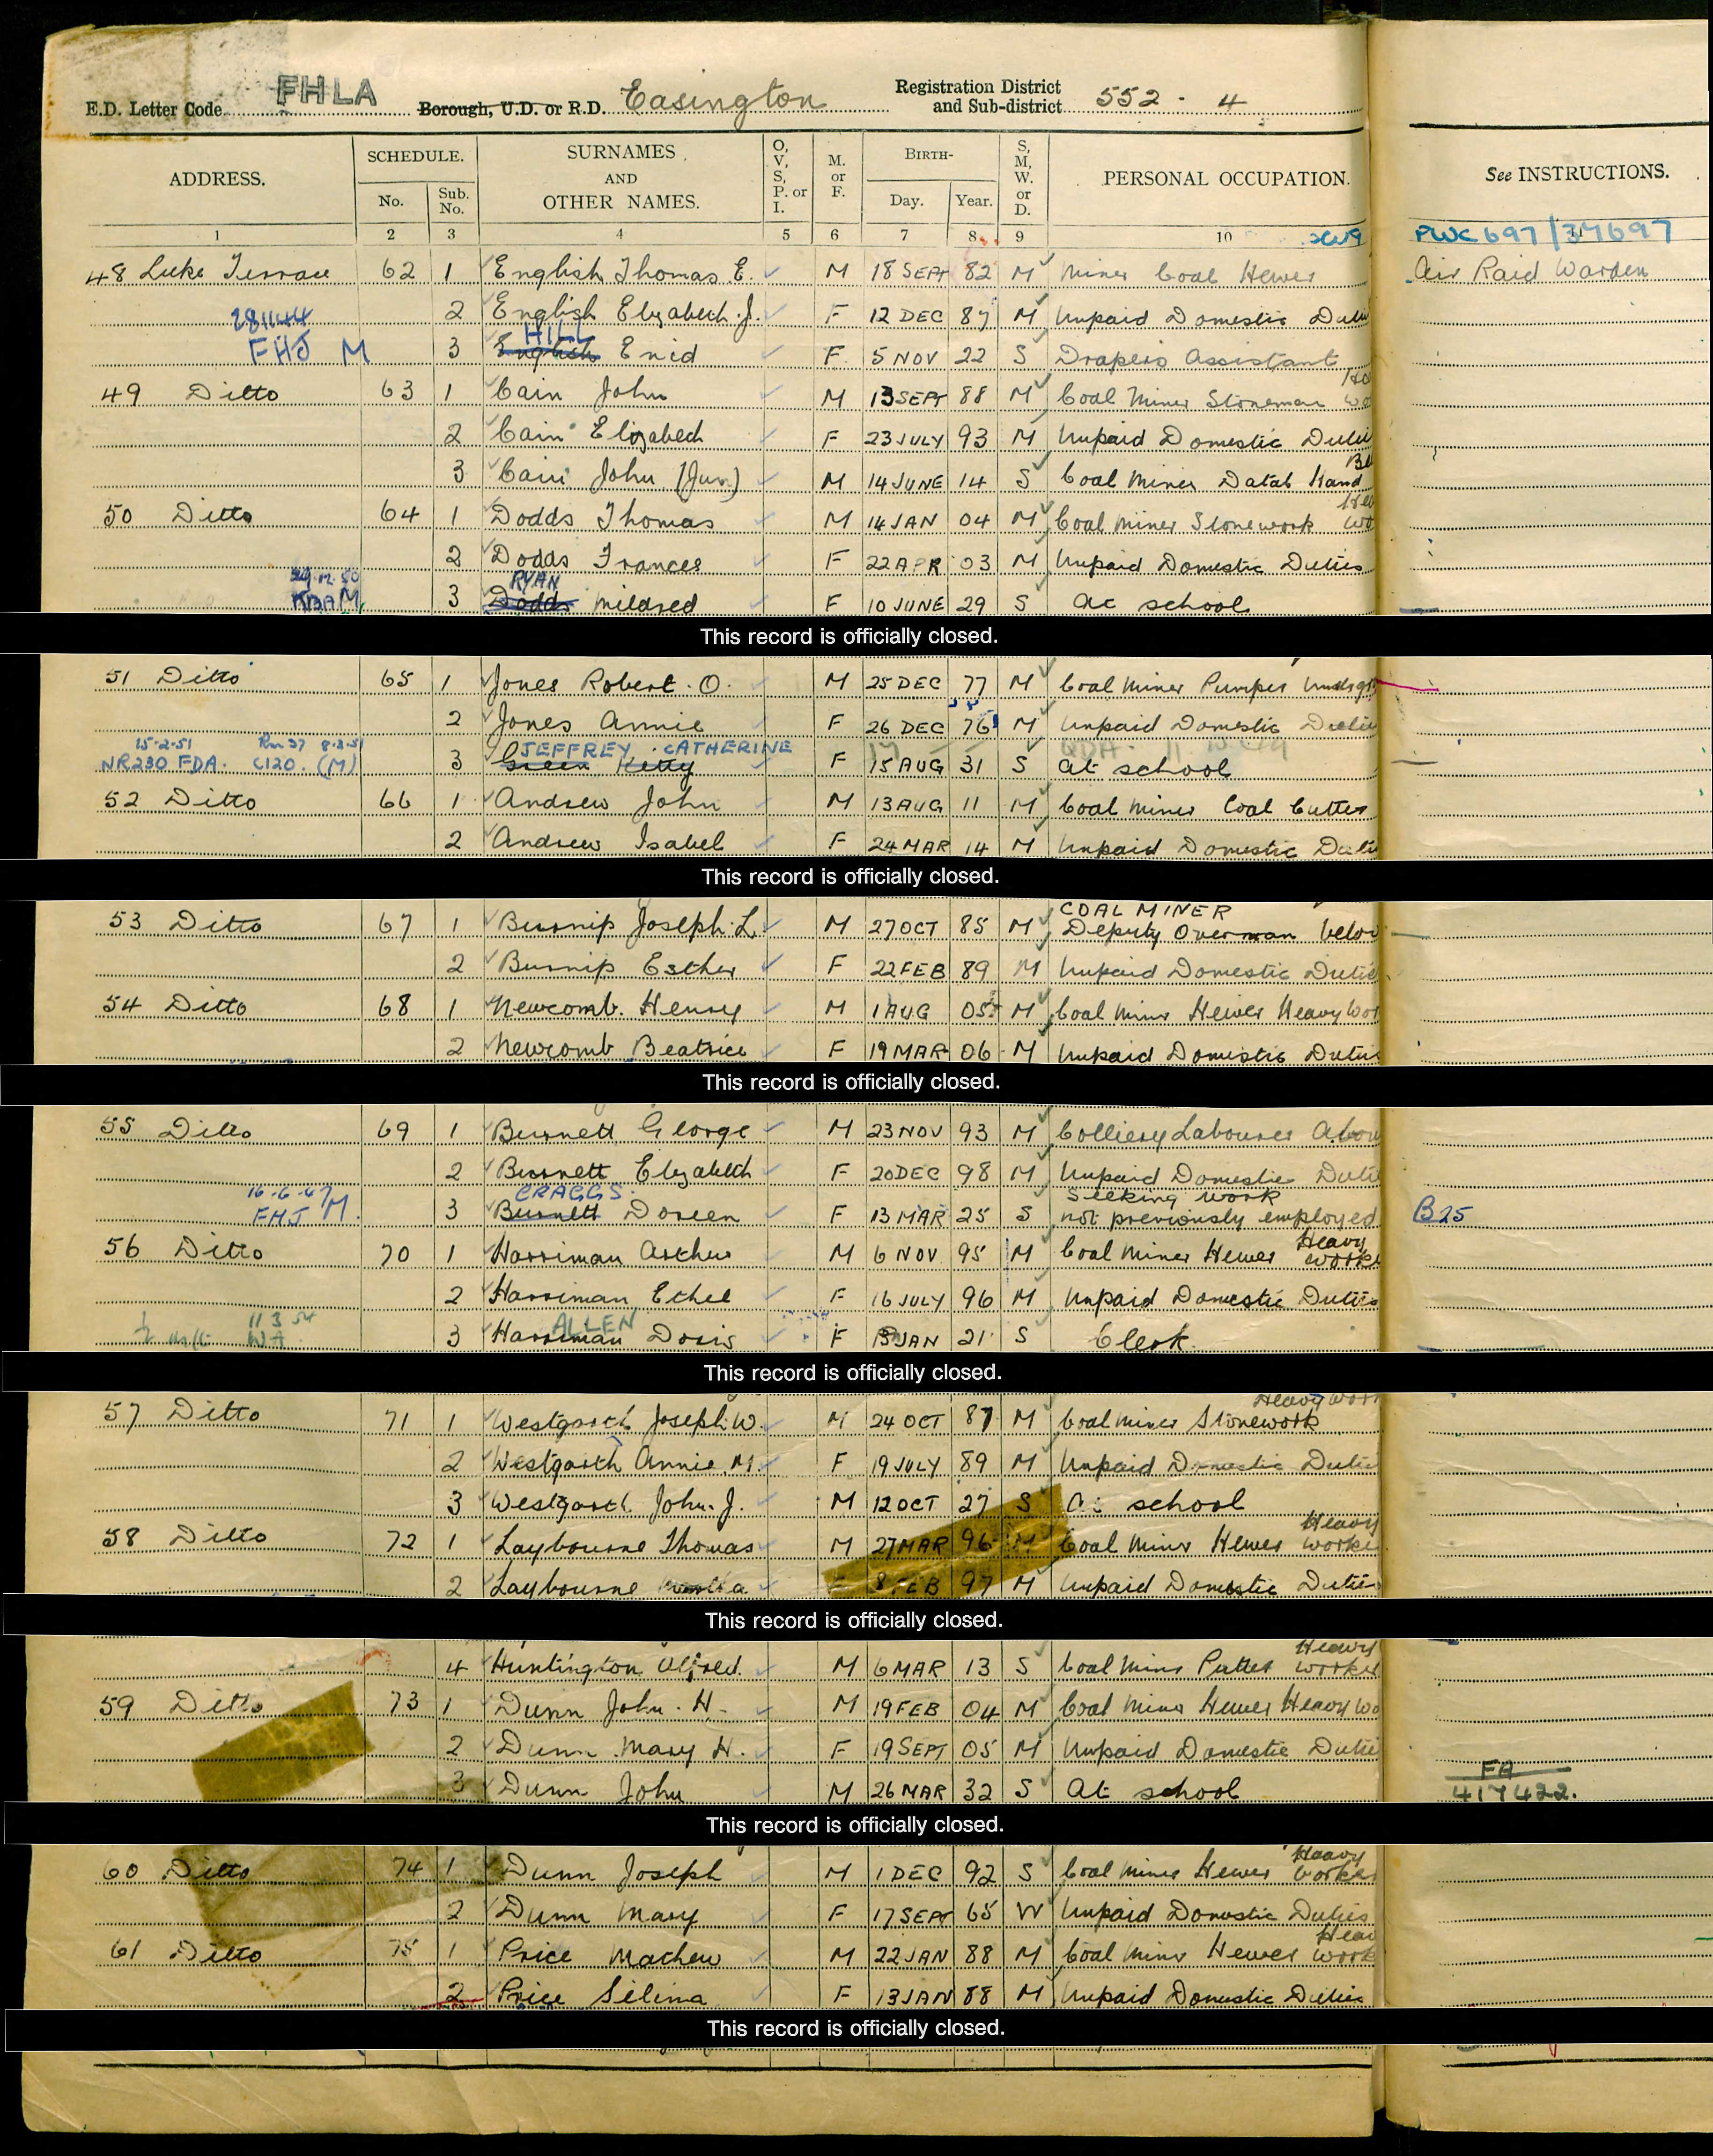 E.D. Letter Code FHLA Borough, U.D. or R.D. Easington Registration District and Sub-district 552 - 4
ADDRESS. SCHEDULE. No. Sub. No. SURNAMES AND OTHER NAMES. O, V, S, P. or I. M. or F. BIRTH- Day. Year. S, M, W. or D. PERSONAL OCCUPATION. See INSTRUCTIONS.
1 2 3 4 5 6 7 8 9 10
PWC 697/37697
48 Luke Terrace 62 1 English Thomas E. M 18 SEPT 82 M Miner Coal Hewer Air Raid Warden
2 English Elizabeth J. F 12 DEC 87 M Unpaid Domestic
281144 HILL
FHJ M 3 English Enid F 5 NOV 22 S Drapers Assistant
49 Ditto 63 1 Cain John M 13 SEPT 88 M Coal Miner Stoneman
2 Cain Elizabeth F 23 JULY 93 M Unpaid Domestic Dutie
3 Cain John (Jun.) M 14 JUNE 14 S Coal Miner Datal Hand
50 Ditto 64 1 Dodds Thomas M 14 JAN 04 M Coal Miner Stonework
2 Dodds Frances F 22 APR 03 M Unpaid Domestic Duties
29.12.50 RYAN
M 3 Dodds Mildred F 10 JUNE 29 S At school
This record is officially closed.
51 Ditto 65 1 Jones Robert O. M 25 DEC 77 M Coal Miner Pumper
2 Jones Annie F 26 DEC 76 M Unpaid Domestic Dutie
15.2.51 Rm 37 8.3.51 JEFFREY CATHERINE
NR230 FDA. C120. (M) 3 Green Ketty F 15 AUG 31 S At school
52 Ditto 66 1 Andrew John M 13 AUG 11 M Coal Miner Coal Cutter
2 Andrew Isabel F 24 MAR 14 M Unpaid Domestic Dutie
This record is officially closed.
COAL MINER
53 Ditto 67 1 Burnip Joseph L M 27 OCT 85 M Deputy Overman below
2 Burnip Esther F 22 FEB 89 M Unpaid Domestic Dutie
54 Ditto 68 1 Newcomb Henry M 1 AUG 05 M Coal Miner Hewer Heavy Wor
2 Newcomb Beatrice F 19 MAR 06 M Unpaid Domestic Dutie
This record is officially closed.
55 Ditto 69 1 Burnett George M 23 NOV 93 M Colliery Labourer Abov
2 Burnett Elizabeth F 20 DEC 98 M Unpaid Domestic Dutie
16-6-47 CRAGGS Seeking work
FHJ M. 3 Burnett Doreen F 13 MAR 25 S not previously employed B25
56 Ditto 70 1 Harriman Arthur M 6 NOV 95 M Coal Miner Hewer Heavy Worke
2 Harriman Ethel F 16 JULY 96 M Unpaid Domestic Duties
11 3 54 ALLEN
WA 3 Harriman Doris F JAN 21 S Clerk
This record is officially closed.
Heavy Work
57 Ditto 71 1 Westgarth Joseph W. M 24 OCT 87 M Coal Miner Stonework
2 Westgarth Annie M. F 19 JULY 89 M Unpaid Domestic Dutie
3 Westgarth John J. M 12 OCT 27 S At school
58 Ditto 72 1 Laybourne Thomas M 27 MAR 96 M Coal Miner Hewer Heavy Worke
2 Laybourne F 8 FEB 97 M Unpaid Domestic Duties
This record is officially closed.
4 Huntington Alfred M 6 MAR 13 S Coal Mine Putter Heavy Worker
59 Ditto 73 1 Dunn John H. M 19 FEB 04 M Coal Miner Hewer Heavy Wo
2 Dunn Mary H. F 19 SEPT 05 M Unpaid Domestic Dutie
FA
3 Dunn John M 26 MAR 32 S At school 417422.
This record is officially closed.
60 Ditto 74 1 Dunn Joseph M 1 DEC 92 S Coal Miner Hewer Heavy Worker
2 Dunn Mary F 17 SEPT 65 W Unpaid Domestic Duties
61 Ditto 75 1 Price Mathew M 22 JAN 88 M Coal Miner Hewer Heav Work
2 Price Selina F 13 JAN 88 M Unpaid Domestic Duties
This record is officially closed.